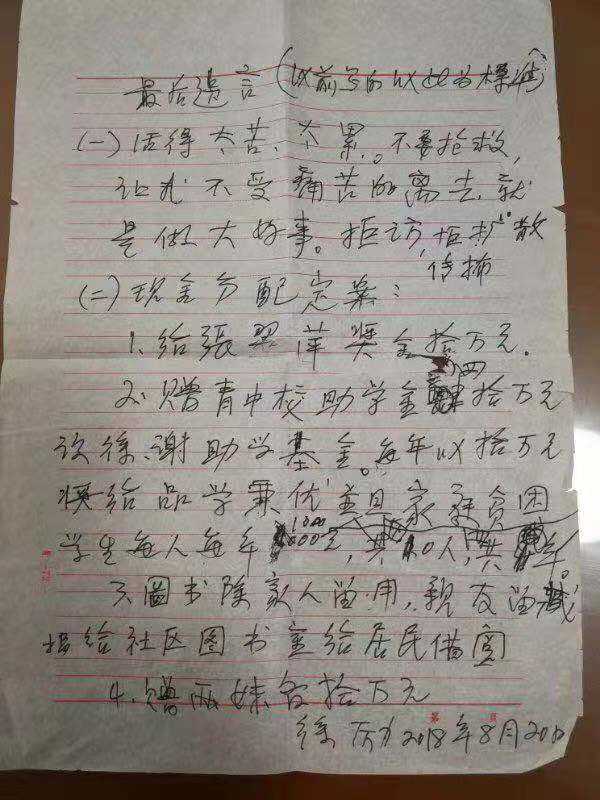 最后遗言(以前写的以此为標准)
(一)活得太苦、太累。不要抢救,
让我不受痛苦的离去就
是做大好事。拒访,拒扩散
传播
(二)现金分配定案:
1.给張翠萍獎金拾万元.
2.赠青中校助学金四拾万元
设徐、谢助学基金。每年以拾万元
獎给品学兼优
学生每人每年1000元,共10人,共
3.圖书除家人留用,親友留藏
捐给社区图书室给居民借阅
4.赠兩妹各拾万元
徐 2018年8月20日